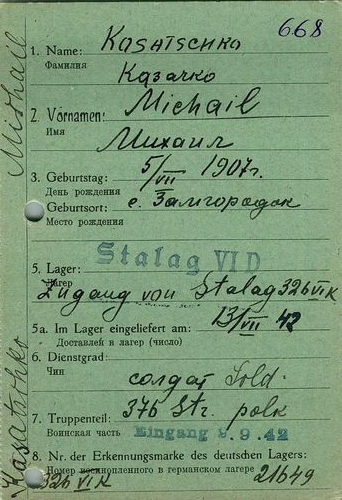 668
1. Name: Kasatschko
Фамилия
Казачко
2. Vornamen: Michail
Имя
Михаил
3. Geburtstag: 5/VII 1907г.
День рождения
Geburtsort: с. Замгородок
Место рождения
Stalag VI D
5. Lager:
Лагерь
Zugang von Stalag 326 VI K
5a. Im Lager eingeliefert am: 13/VII 42
Доставлен в лагерь (число)
6. Dienstgrad:
Чин
солдат Sold.
7. Truppenteil: 376 Str. polk
Воинская часть
Eingang 9.9.42
8. Nr. der Erkennungsmarke des deutschen Lagers:
Номер военнопленного в германском лагере 21649
326 VI K
Michail
Kasatschko